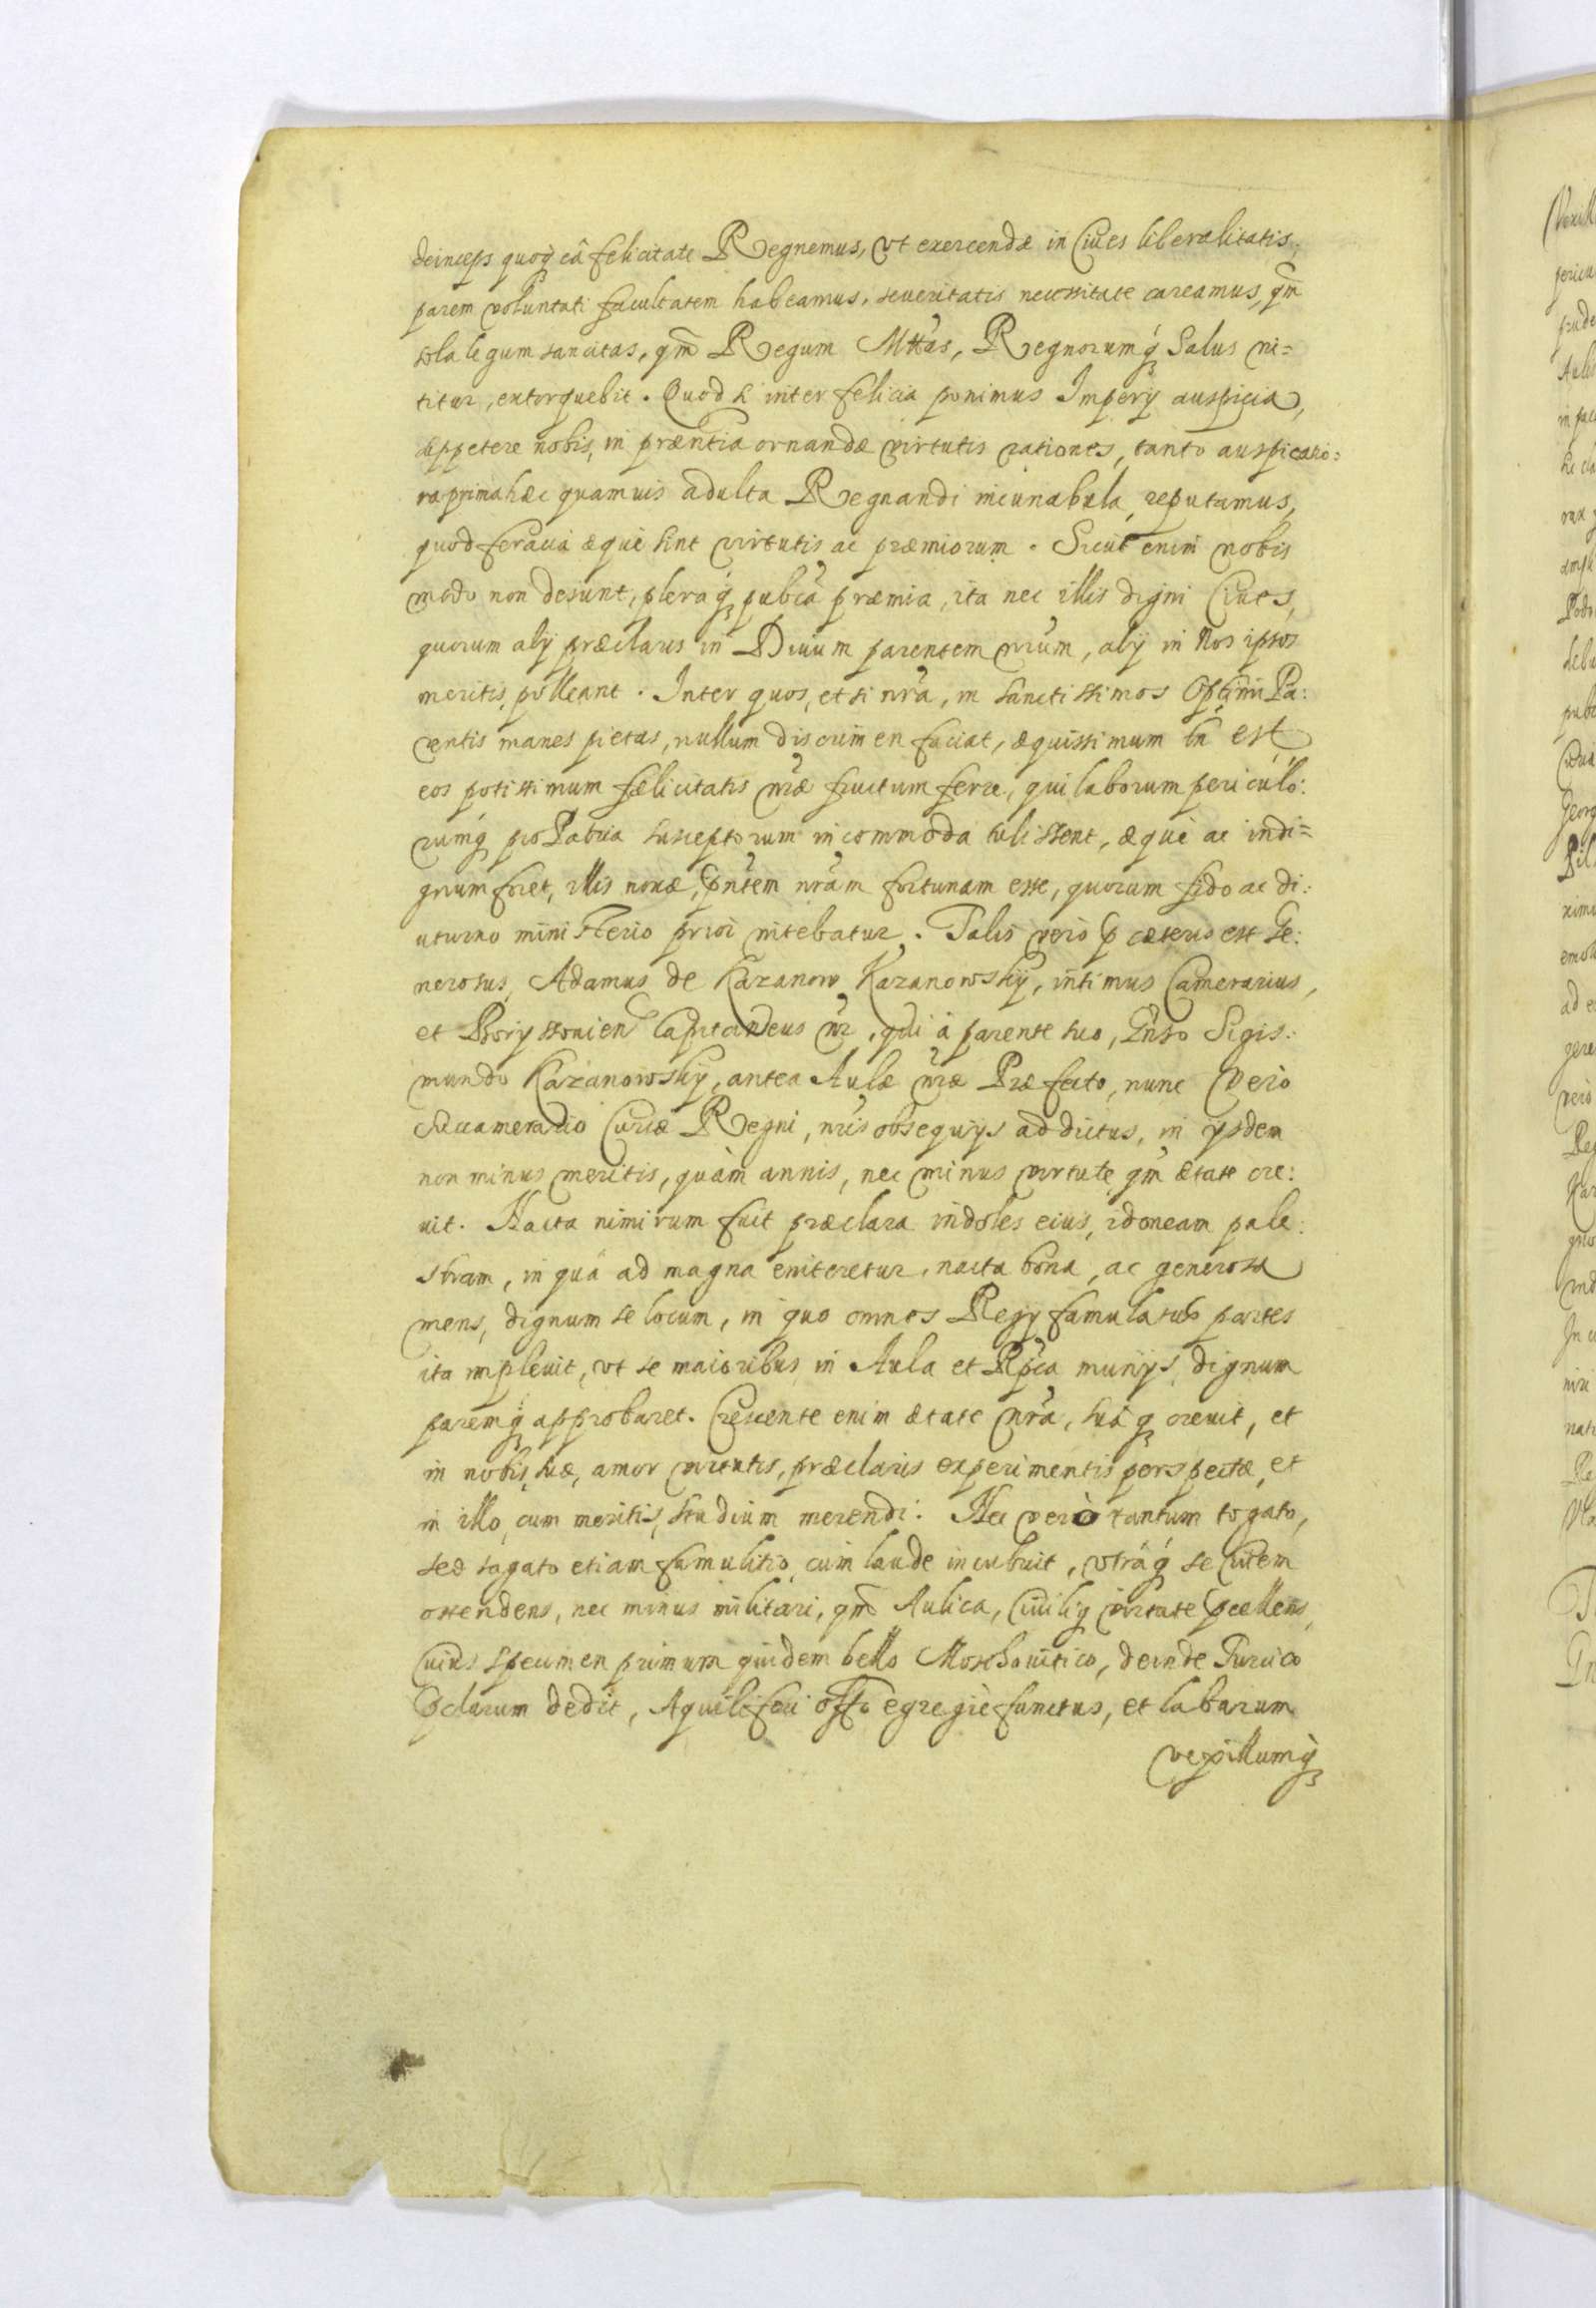 deinceps quoq; eâ felicitate Regnemus, vt exercendæ in Ciues liberalitatis,
parem voluntati facultatem habeamus, seueritatis necessitate careamus, qm̃
sola legum sancitas, qm̃ Regum Mttas, Regnorumq; Salus ni=
titur, extorquebit. Quod si inter felicia ponimus Imperij auspicia,
suppetere nobis, in præntia ornandæ virtutis rationes, tanto auspicatio:
ra prima hæc quamuis adulta Regnandi incunabula, reputamus,
quod feracia æquè sint virtutis ac præmiorum. Sicut enim nobis
modo non desunt, pleraq; pubca præmia, ita nec illis digni Ciues,
quorum alij præclaris in Diuum parentem nrum, alij in Nos ipsos
meritis, polleant. Inter quos, etsi nra, in sanctissimos Optimi Pa:
rentis manes pietas, nullum discrimen faciat, æquissimum tñ est
eos potissimum fælicitatis nræ fructum ferre, qui laborum periculo:
rumq; pro Patria susceptorum incommoda tulissent, æquè ac indi=
gnum foret, illis nouæ, pntem nram fortunam esse, quorum fido ac di:
uturno ministerio prior nitebatur. Talis verò p cæteris est Ge:
nerosus, Adamus de Kazanow Kazanowskÿ, intimus Camerarius,
et Borÿssouien Capitandeus nr, qui à parente suo, Gnso Sigis:
mundo Kazanowskÿ, antea Aulæ nræ Præfecto, nunc vero
Succamerario Curiæ Regni, nris obsequijs addictus, in ijsdem
non minus meritis, quàm annis, nec minus virtute qm̃ ætate cre:
uit. Nacta nimirum fuit præclara indoles eius, idoneam pale:
stram, in quâ ad magna eniteretur, nacta bona, ac generosa
mens, dignum se locum, in quo omnes Regij famulatus partes
ita impleuit, vt se maioribus in Aula et Rpca munijs, dignum
paremq; approbaret. Crescente enim ætate nra, suáq; creuit, et
in nobis, suæ, amor virtutis, præclaris experimentis perspectæ, et
in illo, cum meritis, studium merendi. Nec verò tantum togato,
sed sagato etiam famulitio, cum laude incubuit, vtráq; se Ciuem
ostendens, nec minus militari, qm̃ Aulica, Ciuiliq; virtute pcellens,
Cuius specimen primum quidem bello Moschouitico, deinde Turcico
pclarum dedit, Aquiliferi offo egregiè functus, et labarum
vexillumq;